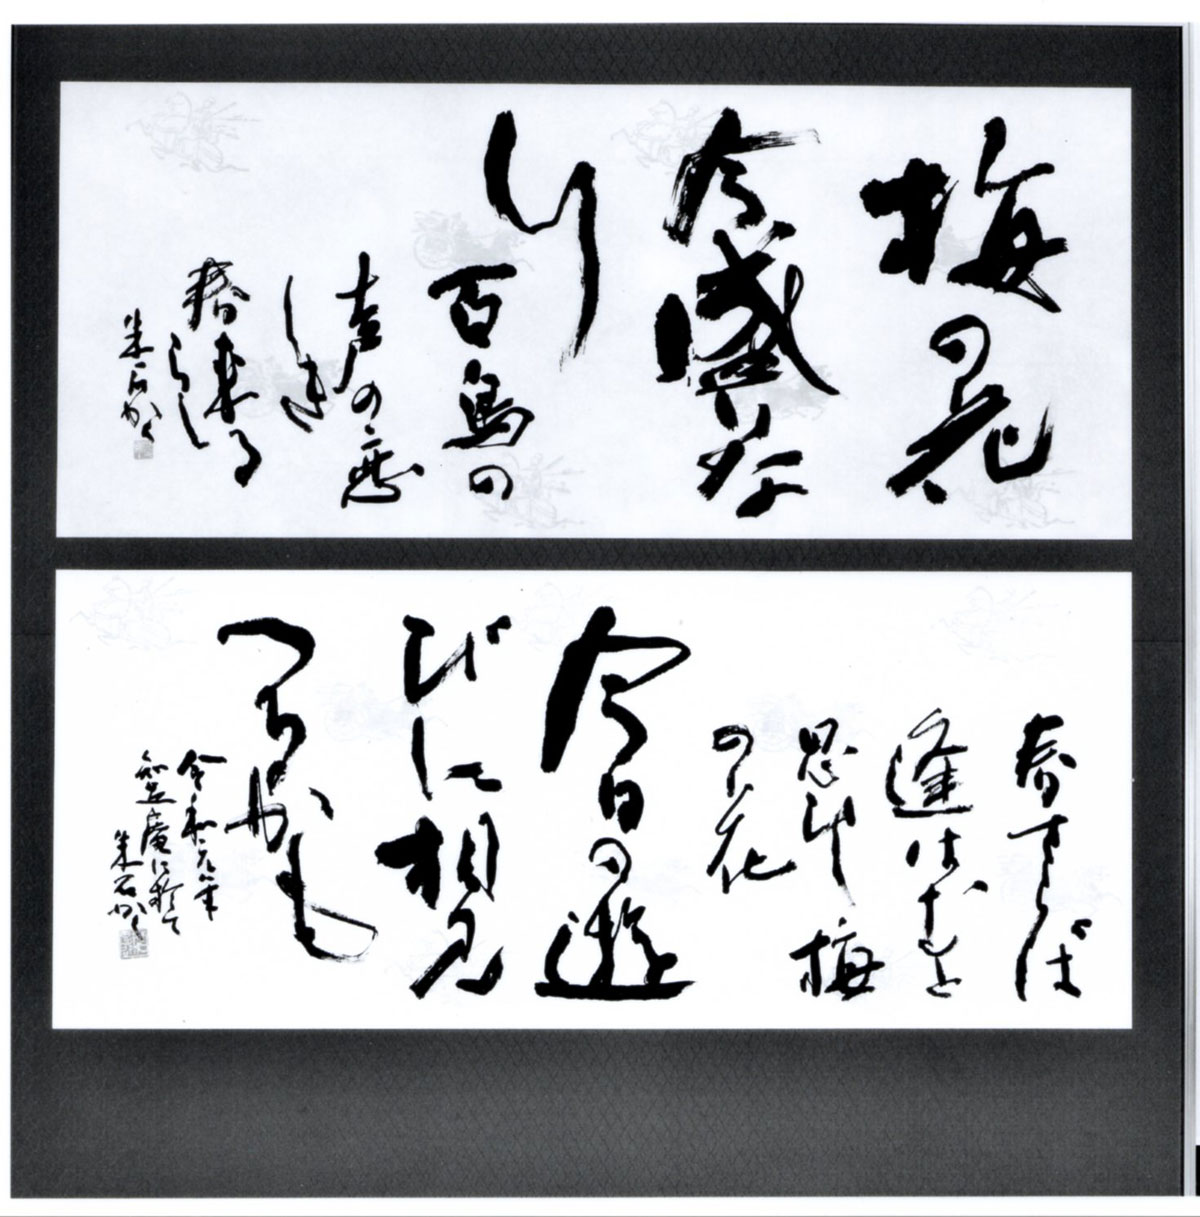 梅の花
今盛りな
り百鳥の
声の恋
しき
春来る
らし
朱石かく
春さらば
逢はむと
思ひし梅
の花
今日の遊
びに相見
つるかも
令和元年
庵に於て
朱石かく